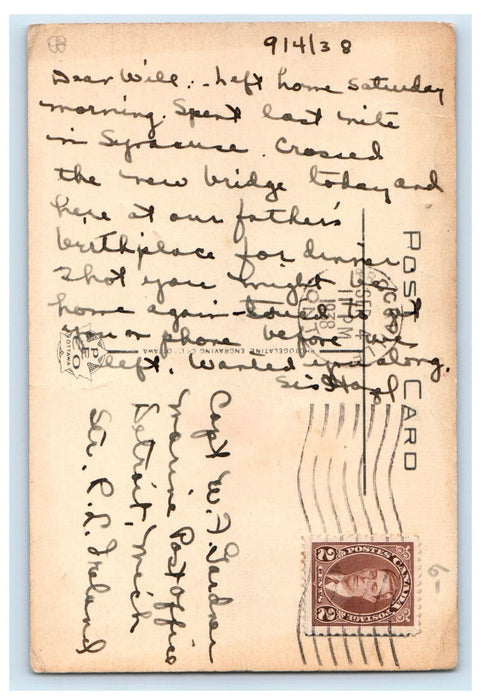 9/4/38
Dear Will:- Left home Saturday
morning. Spent last nite
in Syracuse. Crossed
the new bridge today and
here at our father's
birthplace for dinner
Shot you might be at
home again - tried to
you or phone before we
left. Wanted you along.
Sis Hazel
POST CARD
PHOTOGELATINE ENGRAVING CO. OTTAWA
PECO
OTTAWA
SEP 4
PM
1938
ONT
Capt W. F. Gardner
Marine Post Office
Detroit, Mich
Str. R. L. Ireland
POSTES CANADA POSTAGE
2 CENTS 2
6-